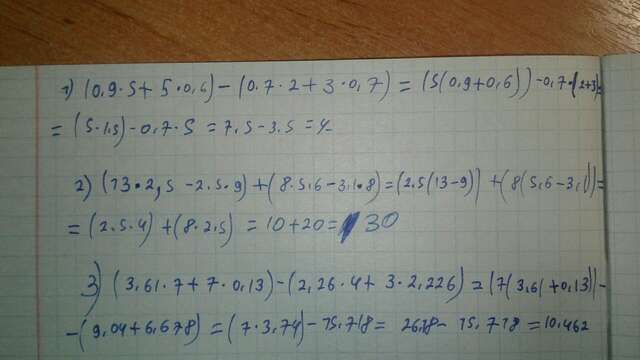 1) (0.9·5+5·0,6)-(0.7·2+3·0,7)=(5(0.9+0,6))-0,7·(2+3)=
=(5·1.5)-0.7·5=7,5-3.5=4
2) (13·2,5-2.5·9)+(8·5,6-3,1·8)=(2.5(13-9))+(8(5,6-3,1))=
=(2.5·4)+(8·2,5)=10+20=30
3) (3,61·7+7·0,13)-(2,26·4+3·2,226)=(7(3,61+0,13))-
-(9,04+6,678)=(7·3,74)-15,718=26,18-15,718=10,462